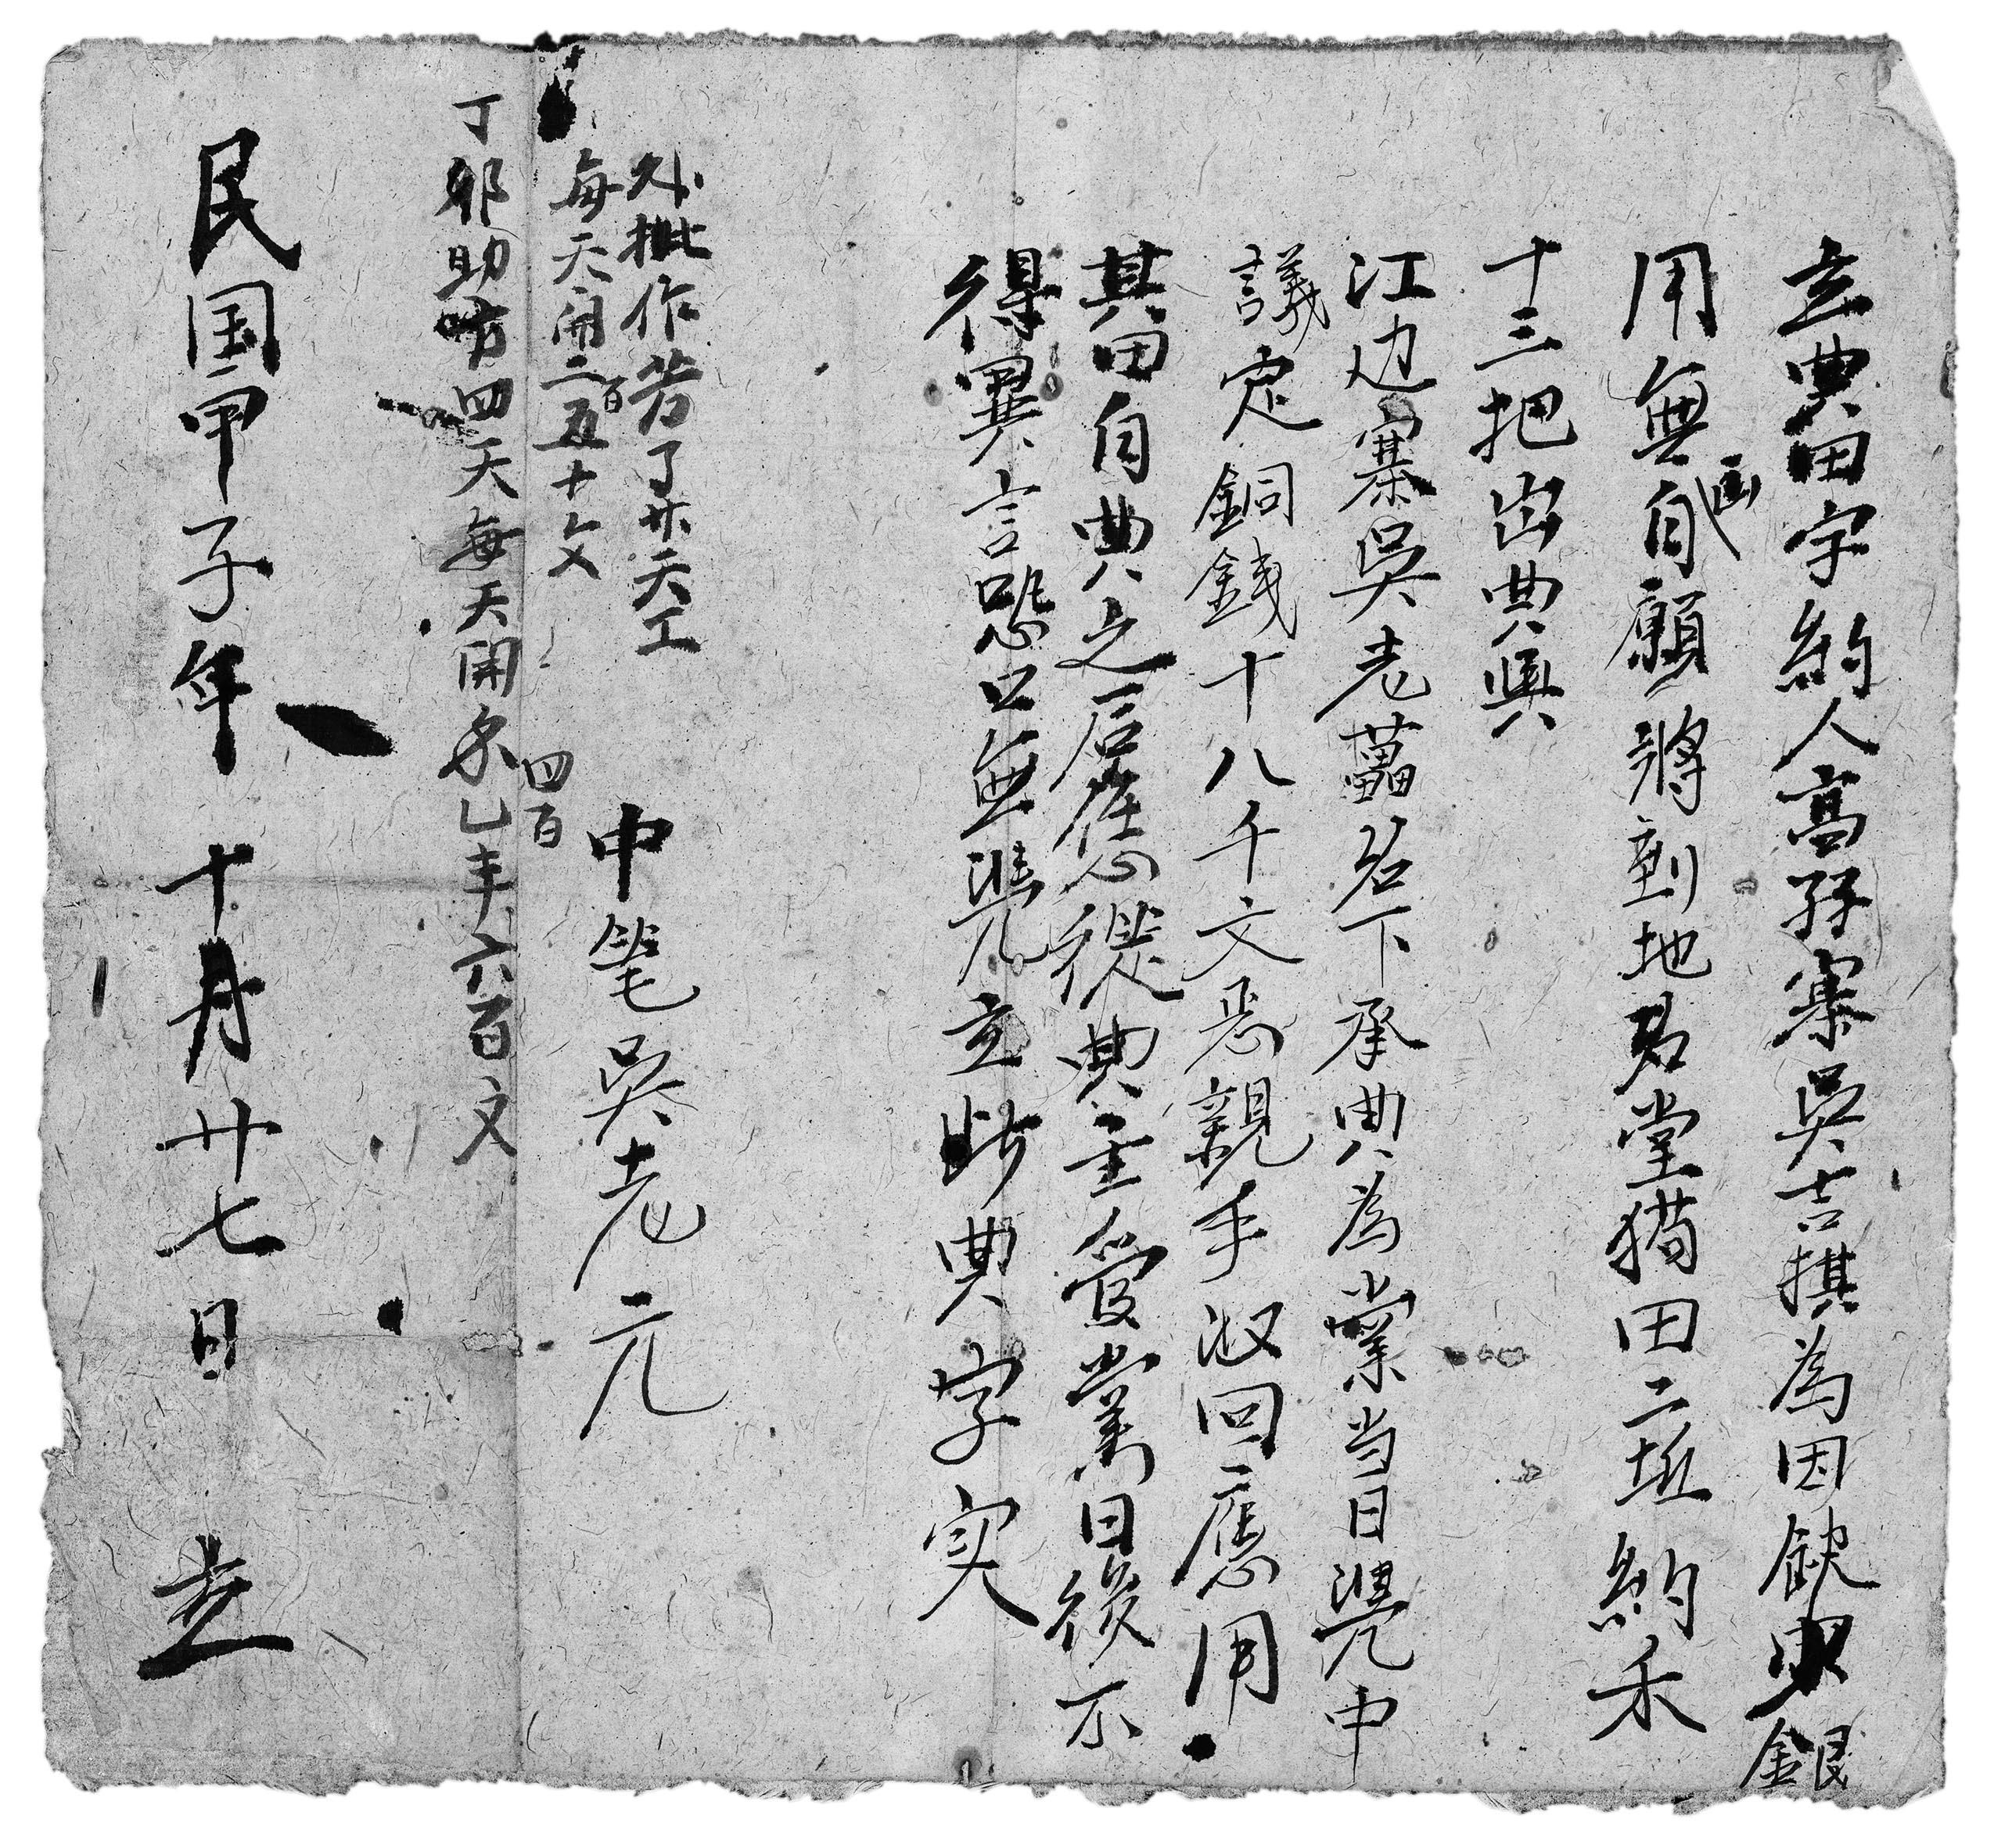 立典田字約人高孖寨吳吉撰為因缺少銀
用無面自願將到地名堂猫田二坵約禾
十三把出典與
江边寨吳老藟名下承典為業当日凴中
議定銅錢十八千文悉親手收回應用
其田自典之后應從典主管業日後不
得異言恐口無凴立此典字实
外批作若了廿天工
每天開二百五十文
丁卯助方四天每天開錢乙千六百文
四百
中笔吳老元
民国甲子年十月廿七日立